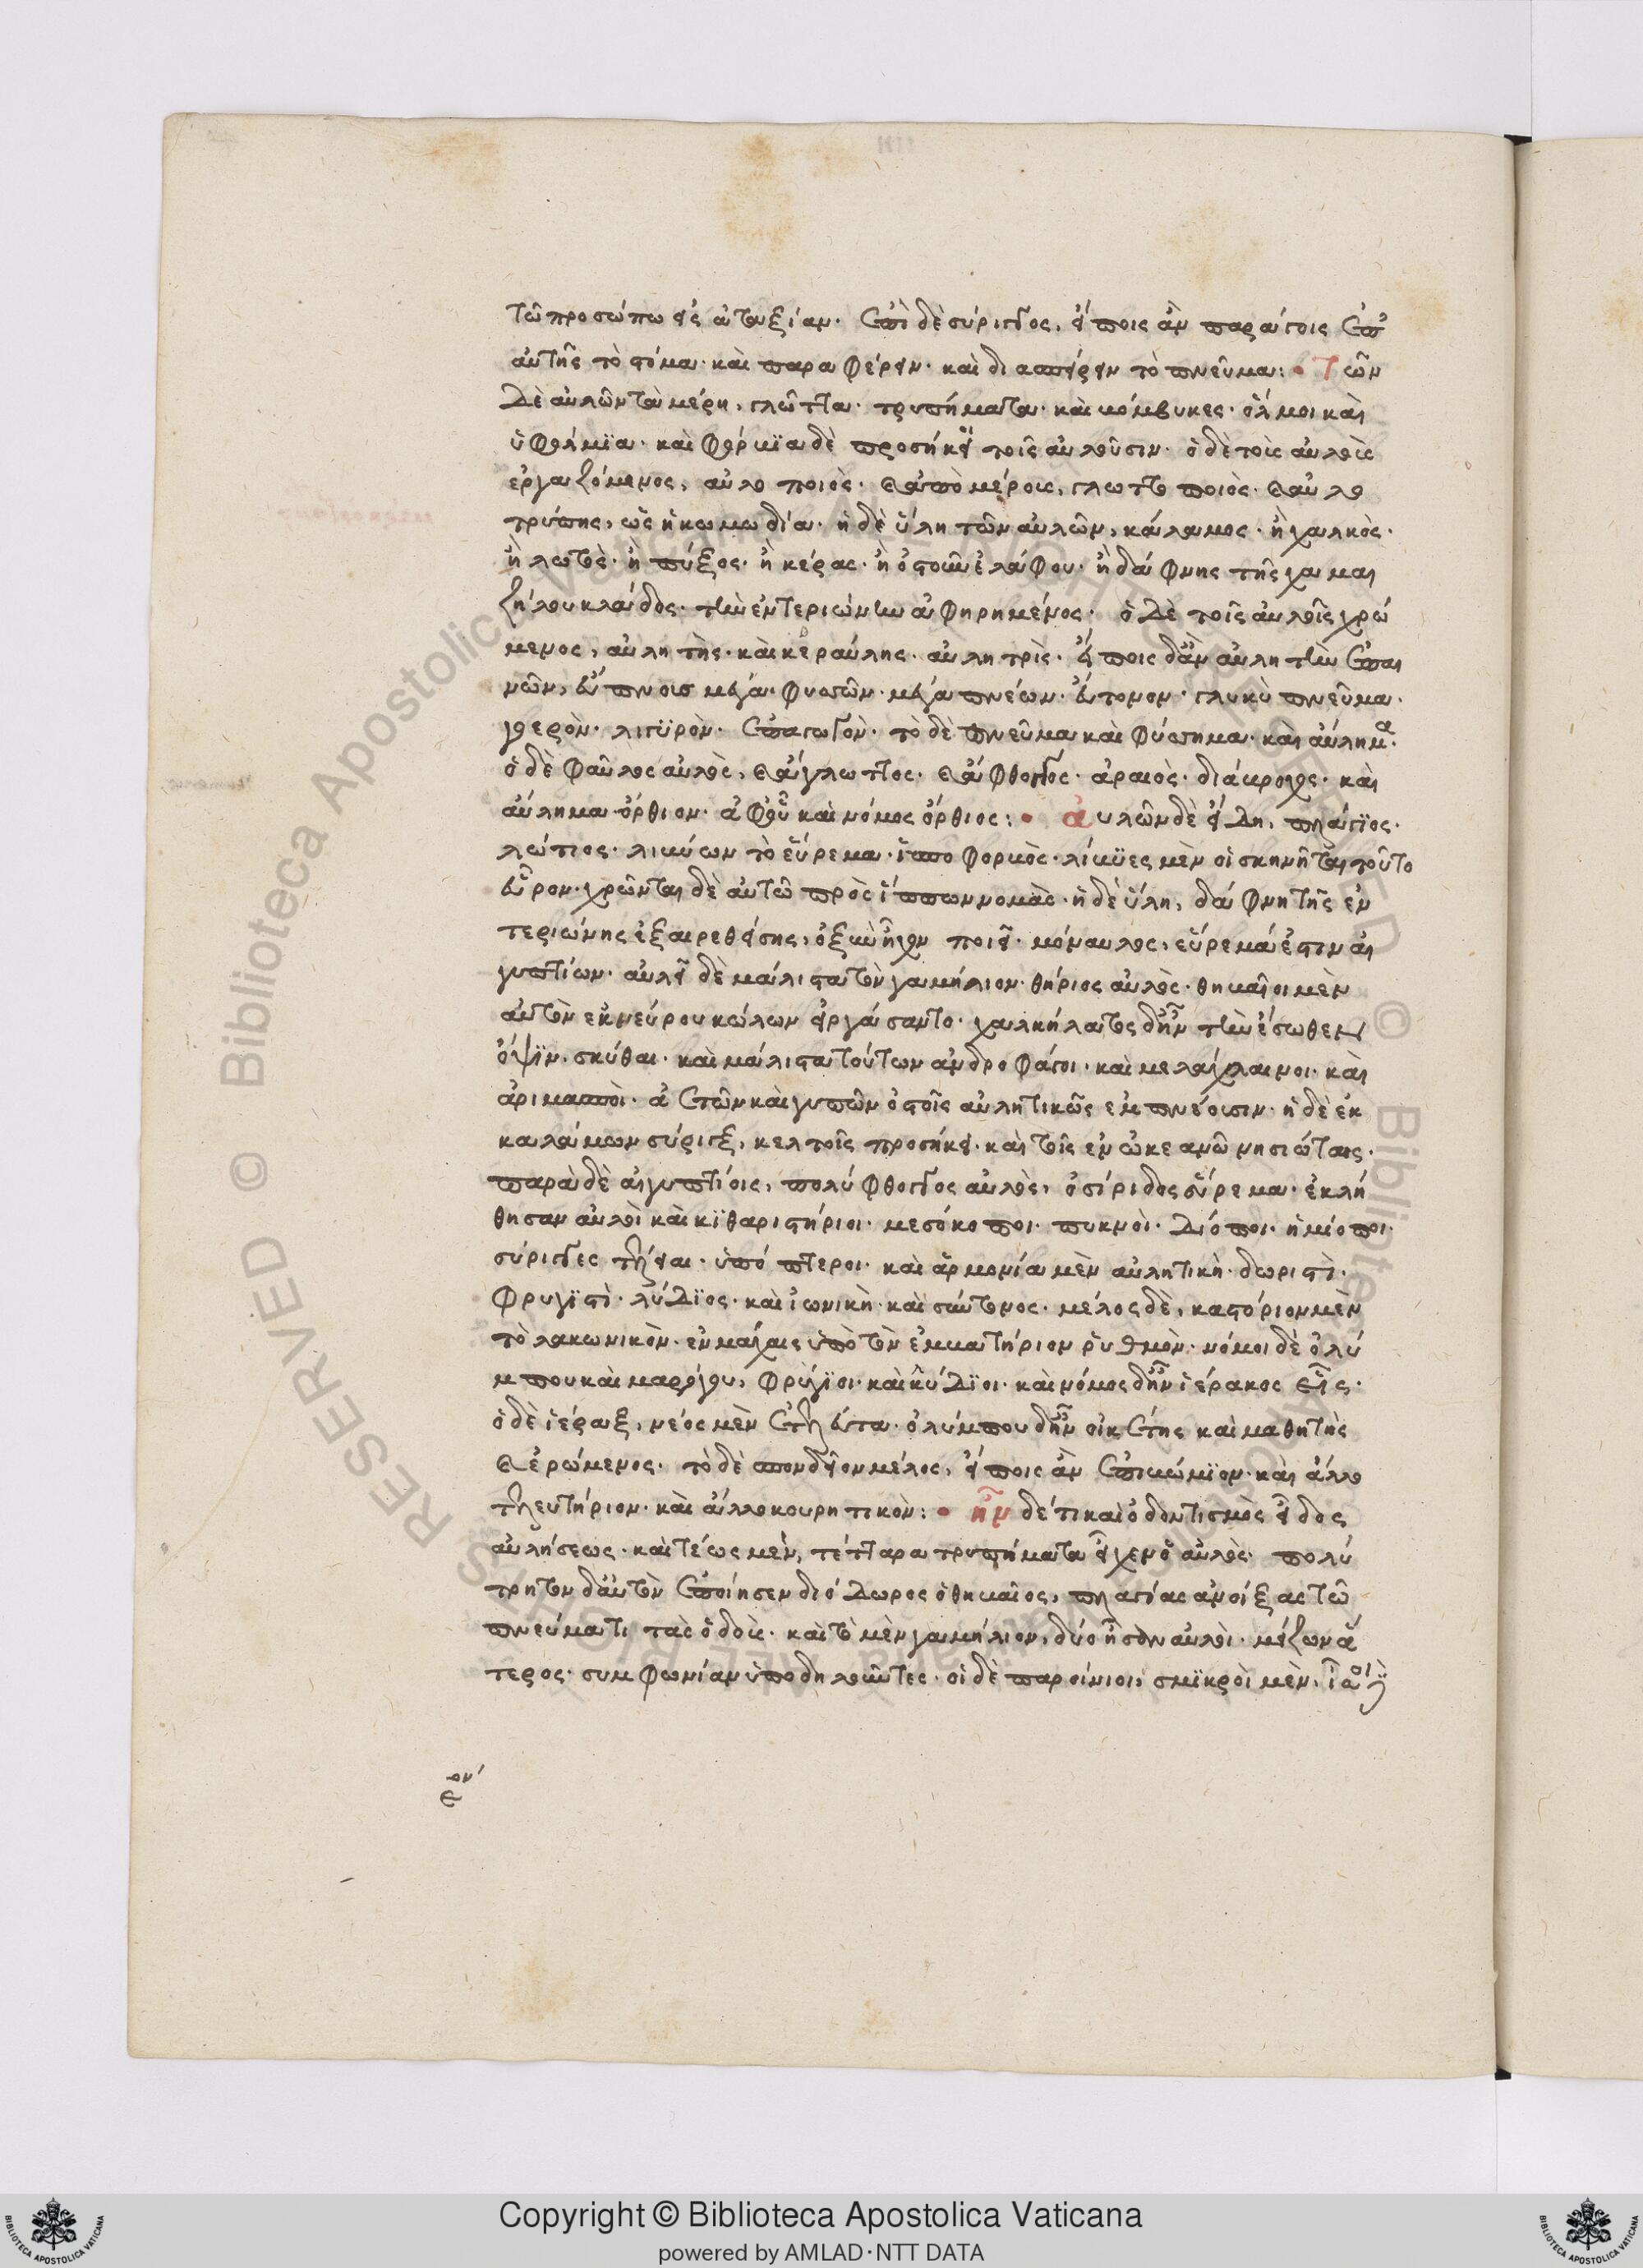 τῶ προσώπω εἰς ἀταξίαν· ἐπὶ δὲ σύριγγος, εἴποις ἂν παραγαγεῖν ἐπ'
αὐτῆς τὸ στόμα· καὶ παραφέρειν· καὶ διασπείρειν τὸ πνεῦμα: • Τῶν
δὲ αὐλῶν τὰ μέρη, γλῶττα· τρυπήματα· καὶ κόμβυκες· ὅλμοι καὶ
ὑφόλμϊα· καὶ φορβϊὰ δὲ προσήκει τοῖς αὐλοῦσιν· ὁ δὲ τοὺς αὐλοὺς
ἐργαζόμενος, αὐλοποιός· καὶ ἀπὸ μέρους, γλωττοποιός· καὶ αὐλο
τρύπης, ὡς ἡ κωμωδία· ἡ δὲ ὕλη τῶν αὐλῶν, κάλαμος· ἢ χαλκὸς·
ἢ λωτὸς· ἢ πύξος· ἢ κέρας· ἢ ὀστοῦν ἐλάφου· ἢ δάφνης τῆς χαμαι
ζήλου κλάδος· τὴν ἐντεριώνην ἀφηρημένος· ὁ δὲ τοῖς αὐλοῖς χρώ
μενος, αὐλητὴς· καὶ κεραύλης· αὐλητρὶς· εἴποις δ' ἂν αὐλητὴν ἐπαι
νῶν, εὔπνους μέγα φυσῶν· μέγα πνέων· εὔτονον· γλυκὺ πνεῦμα·
ἰσχερὸν· λιγϋρὸν· ἐπαγωγὸν· τὸ δὲ πνεῦμα καὶ φύσημα· καὶ αὔλημα·
ὁ δὲ φαῦλος αὐλὸς, καὶ ἄγλωττος· καὶ ἄφθογγος· ἀραιὸς· διάκροιχος· καὶ
αὔλημα ὄρθιον· ἀφ' οὗ καὶ νόμος ὄρθιος: • αὐλῶν δὲ εἴδη, πλάγϊος·
λώτινος· λιβύων τὸ εὕρεμα· ἱπποφορβὸς· λίβϋες μὲν οἱ σκηνῆται τοῦτο
εὗρον· χρῶνται δὲ αὐτῶ πρὸς ἵππων νομὰς· ἡ δὲ ὕλη, δάφνη τῆς ἐν
τεριώνης ἐξαιρεθείσης, ὀξὺν ἦχον ποιεῖ· μόναυλος, εὕρεμά ἐστιν αἰ
γυπτίων· αὐλεῖ δὲ μάλιστα τὸν γαμήλιον· θήριος αὐλὸς· θηβαῖοι μὲν
αὐτὸν ἐκ νεύρου κώλων εἰργάσαντο· χαλκήλατος δ' ἦν τὴν ἔσωθεν
ὄψϊν· σκύθαι· καὶ μάλιστα τούτων ἀνδροφάγοι· καὶ μελάγχλαινοι· καὶ
ἀριμασποὶ· ἀετῶν καὶ γυπῶν ὀστοῖς αὐλητικῶς ἐμπνέουσιν· ἡ δὲ ἐκ
καλάμων σύριγξ, κελτοῖς προσήκει· καὶ τοῖς ἐν ὠκεανῶ νησιώταις·
παρὰ δὲ αἰγυπτίοις, πολύφθογγος αὐλὸς, ὀσίριδος εὕρεμα· ἐκλή
θησαν αὐλοὶ καὶ κϊθαριστήριοι· μεσόκοποι· πυκνοὶ· δίοποι· ἡμίοποι·
σύριγγες τέλειαι· ὑπόπτεροι· καὶ ἁρμονία μὲν αὐλητικὴ· δωριστὶ·
φρυγϊστὶ· λύδϊος· καὶ ἰωνικὴ· καὶ σύντονος· μέλος δὲ, καστόριον μὲν
τὸ λακωνικὸν· ἐν μάχαις ὑπὸ τὸν ἐμβατήριον ῥυθμὸν· νόμοι δὲ ὀλύ
μπου καὶ μαρσύου, φρύγϊοι· καὶ λύδϊοι· καὶ νόμος δ' ἦν ἱέρακος εἷς·
ὁ δὲ ἱέραξ, νέος μὲν ἐτελεύτα· ὀλύμπου δ' ἦν οἰκέτης καὶ μαθητὴς
καὶ ἐρώμενος· τὸ δὲ σπονδεῖον μέλος, εἴποις ἂν ἐπιβώμϊον· καὶ ἄλλο
τελευτήριον· καὶ ἄλλο κουρητικὸν: • ἦν δέ τι καὶ ὀδοντισμὸς εἶδος
αὐλήσεως· καὶ τέως μὲν, τέτταρα τρυπήματα εἶχεν ὁ αὐλὸς· πολύ
τρητον δ' αὐτὸν ἐποίησεν διόδωρος ὁ θηβαῖος, πλαγίας ἀνοίξας τῶ
πνεύματι τὰς ὁδοὺς· καὶ τὸ μὲν γαμήλιον, δύο ἦσαν αὐλοὶ· μείζων ἅ
τερος· συμφωνίαν ὑποδηλοῦντες· οἱ δὲ παροίνιοι, σμϊκροὶ μὲν,